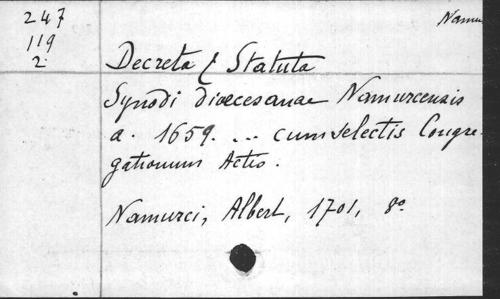 247
119
2.
Namu
Decreta & Statuta
Synodi diœcesanae Namurcensis
a. 1659. ... cum selectis Congre-
gationum Actis.
Namurci, Albert, 1701, 8º